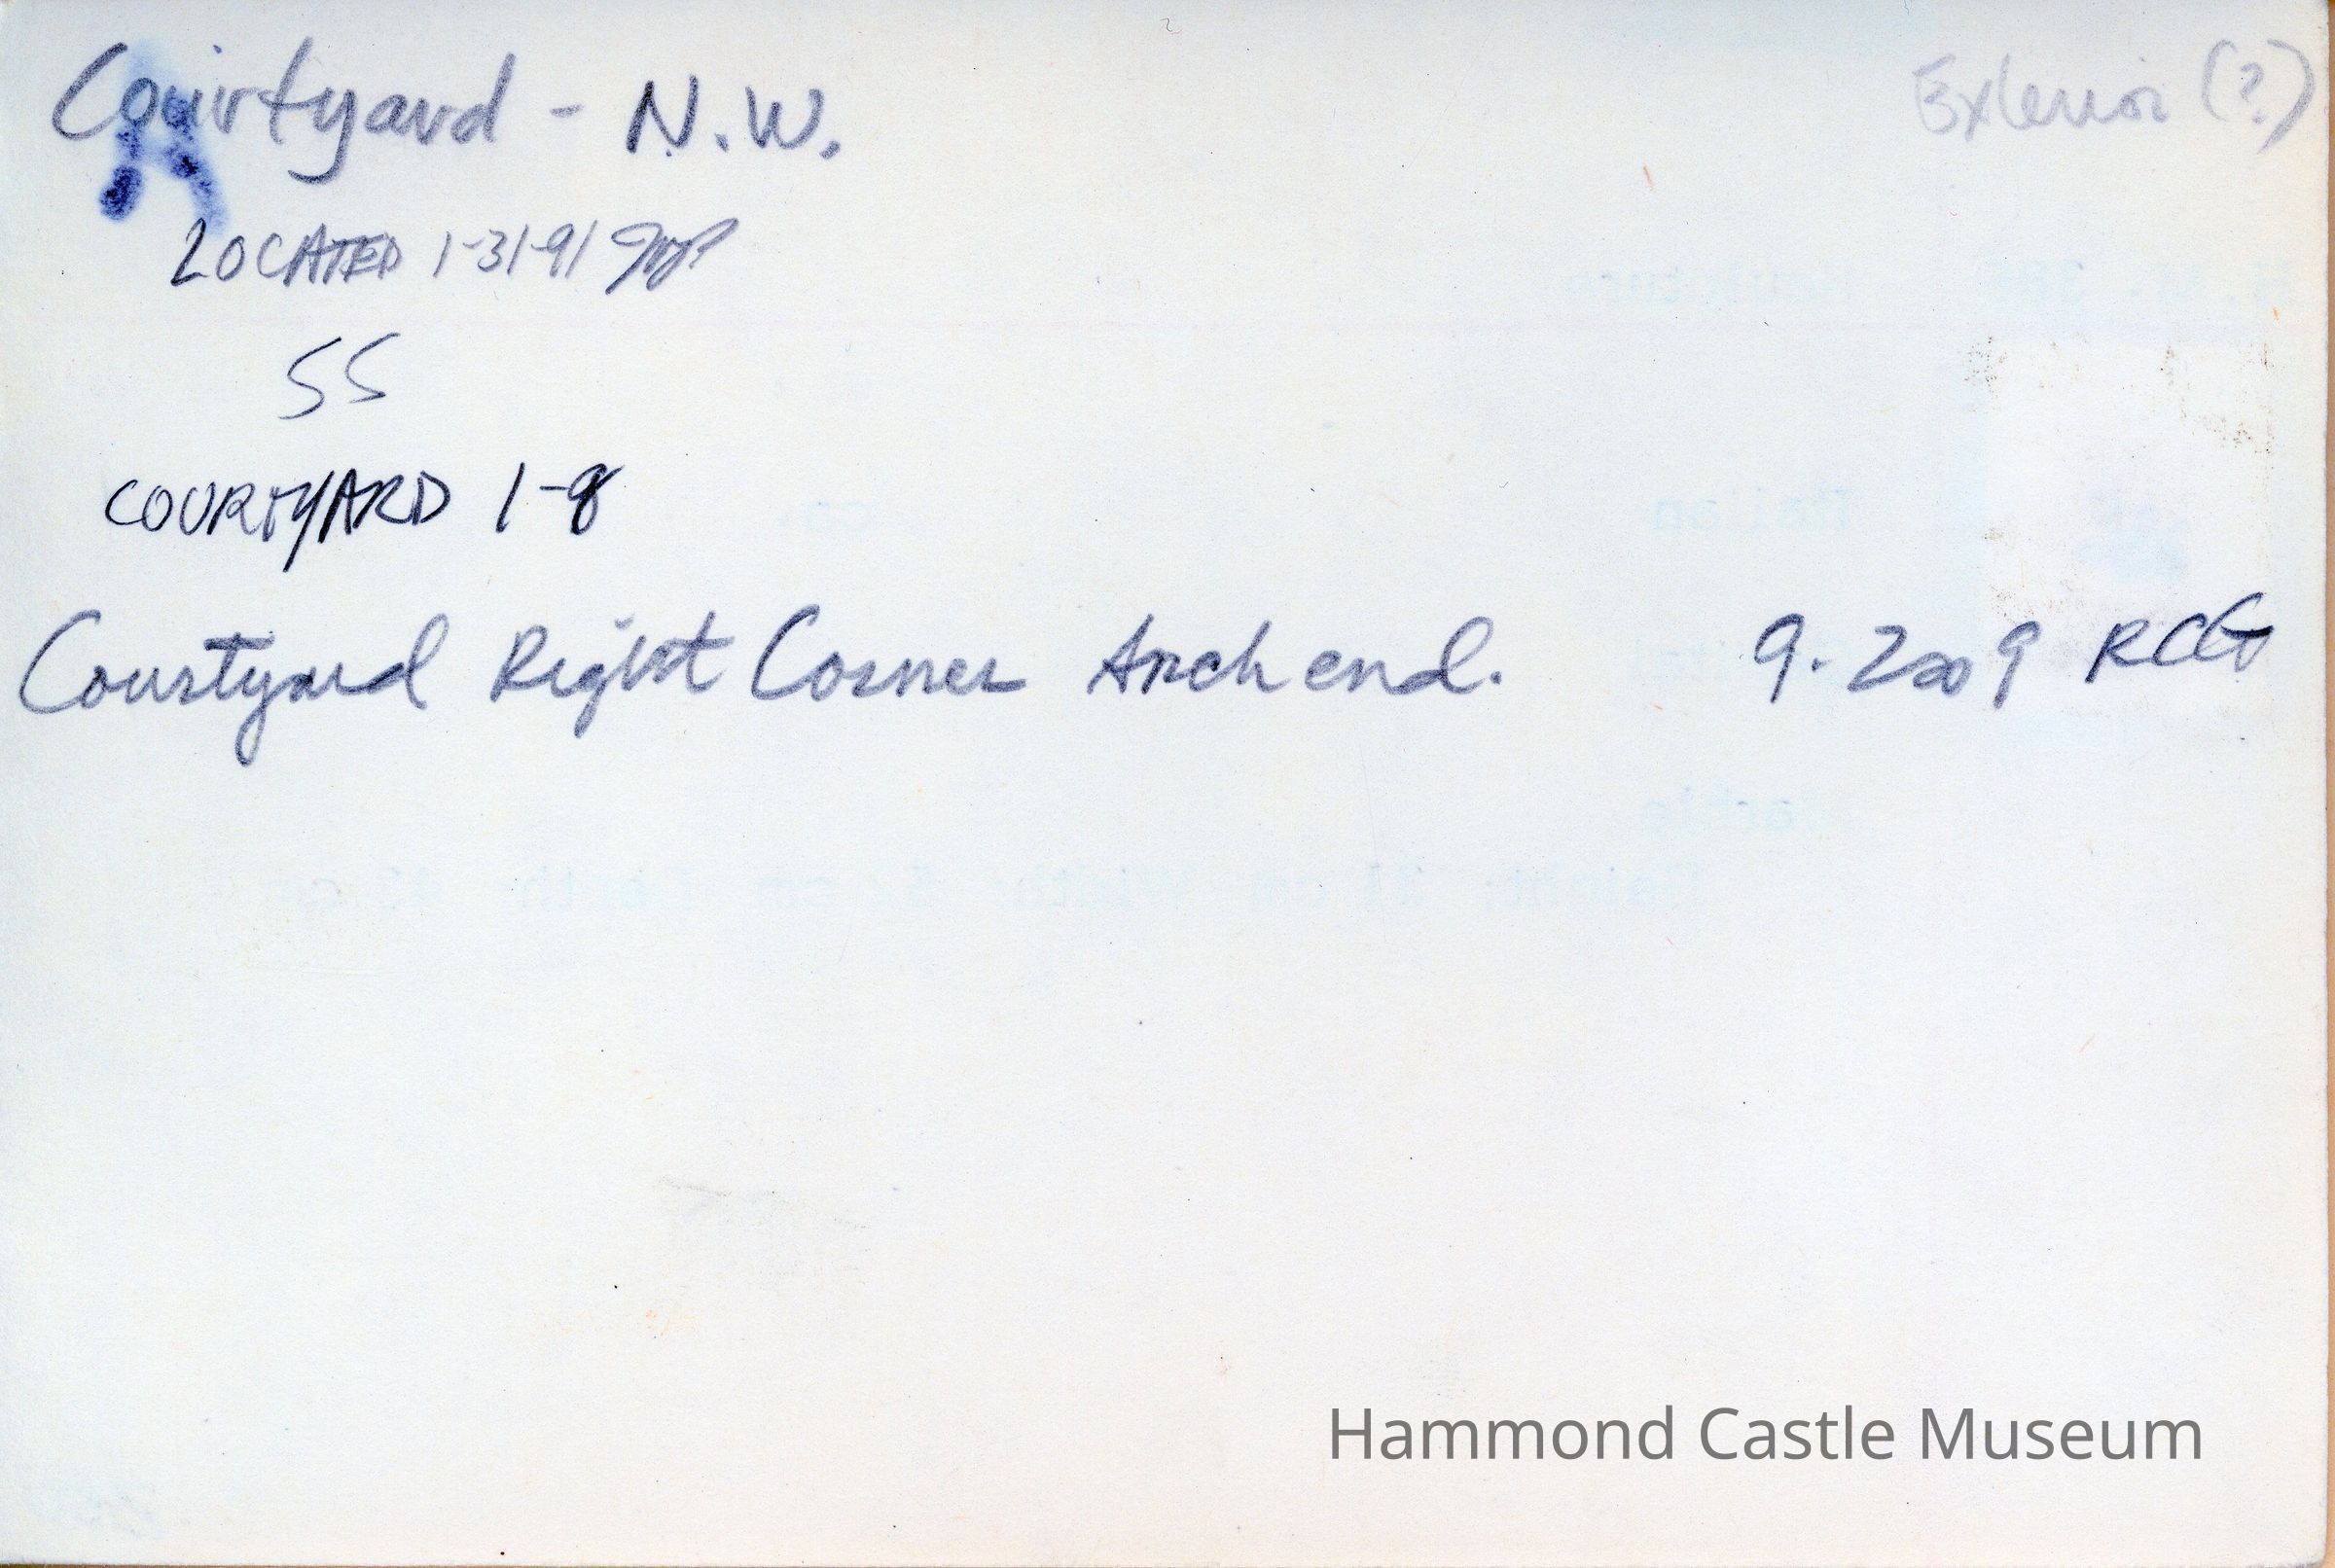 Courtyard - N.W. Exterior (?)
LOCATED 1-31-91
SS
COURTYARD 1-8
Courtyard Right Corner Arch end. 9.2009 RCG
Hammond Castle Museum